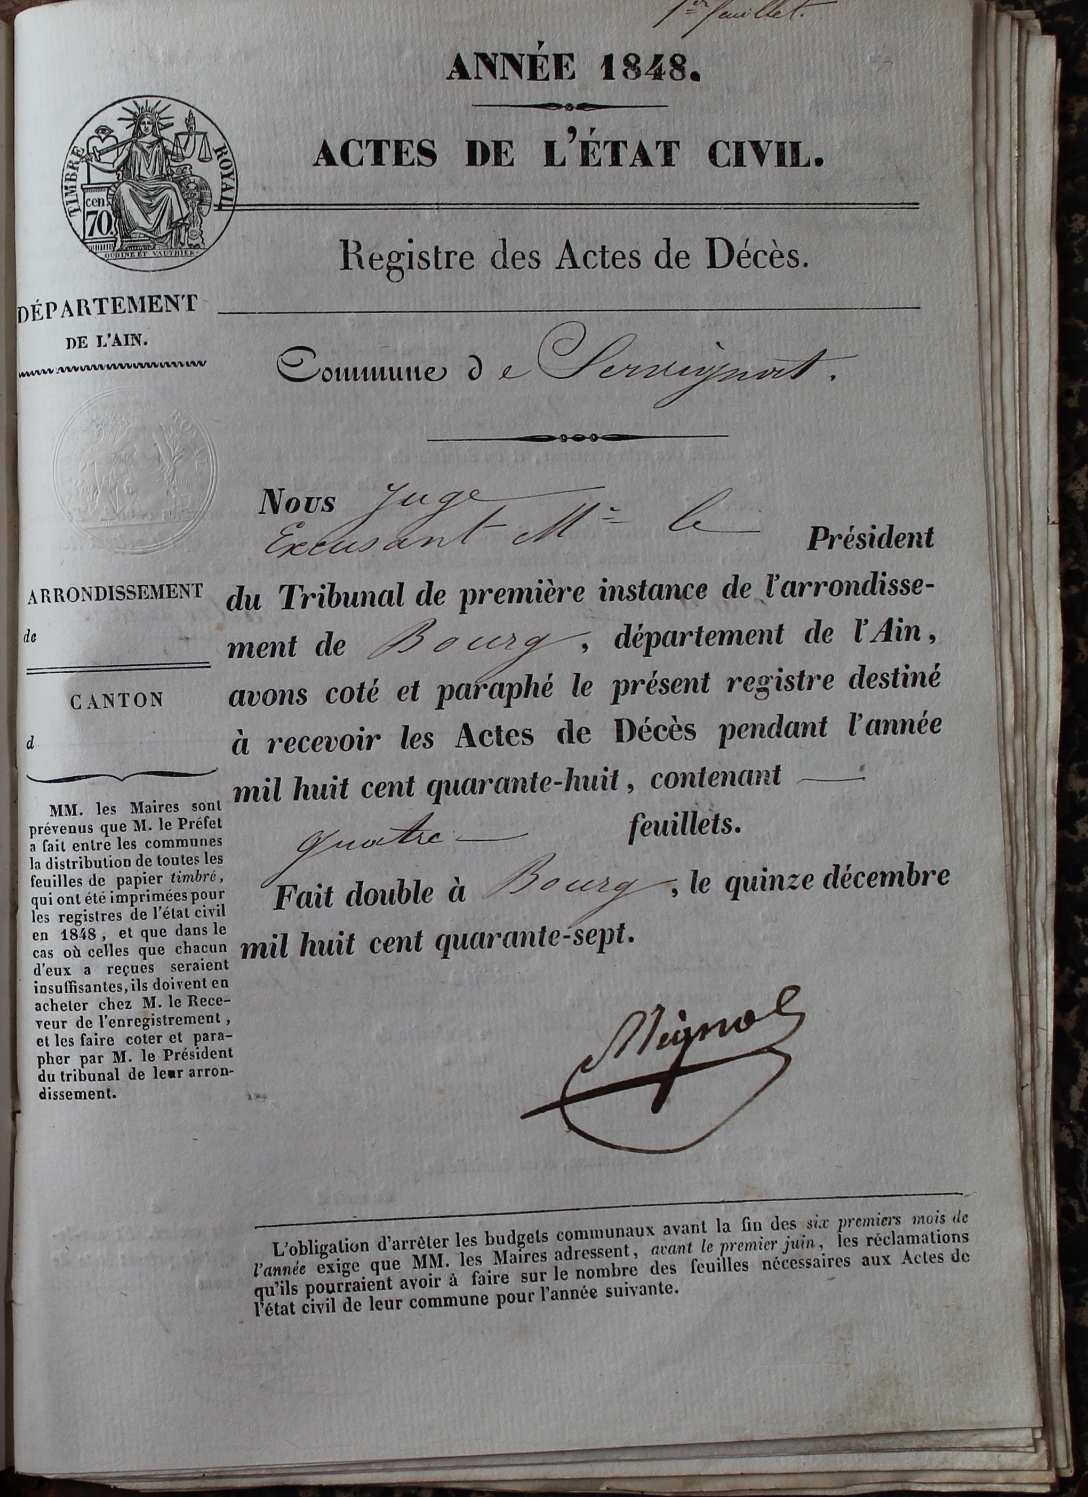 1er feuillet.
ANNÉE 1848.
ACTES DE L'ÉTAT CIVIL.
TIMBRE ROYAL
cen
70
OUDINÉ ET VAUTHIER
Registre des Actes de Décès.
DÉPARTEMENT
DE L'AIN.
Commune de Servignat.
Nous Juge
Excusant Mr le Président
du Tribunal de première instance de l'arrondisse-
ment de Bourg, département de l'Ain,
avons coté et paraphé le présent registre destiné
à recevoir les Actes de Décès pendant l'année
mil huit cent quarante-huit, contenant
quatre feuillets.
Fait double à Bourg, le quinze décembre
mil huit cent quarante-sept.
ARRONDISSEMENT
de
CANTON
d
MM. les Maires sont
prévenus que M. le Préfet
a fait entre les communes
la distribution de toutes les
feuilles de papier timbré,
qui ont été imprimées pour
les registres de l'état civil
en 1848, et que dans le
cas où celles que chacun
d'eux a reçues seraient
insuffisantes, ils doivent en
acheter chez M. le Rece-
veur de l'enregistrement,
et les faire coter et para-
pher par M. le Président
du tribunal de leur arron-
dissement.
L'obligation d'arrêter les budgets communaux avant la fin des six premiers mois de
l'année exige que MM. les Maires adressent, avant le premier juin, les réclamations
qu'ils pourraient avoir à faire sur le nombre des feuilles nécessaires aux Actes de
l'état civil de leur commune pour l'année suivante.